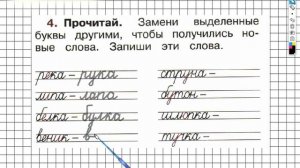 4. Прочитай. Замени выделенные
буквы другими, чтобы получились но-
вые слова. Запиши эти слова.
река – рука струна –
липа – лапа бутон –
белка – булка шлюпка –
веник – в тупка –